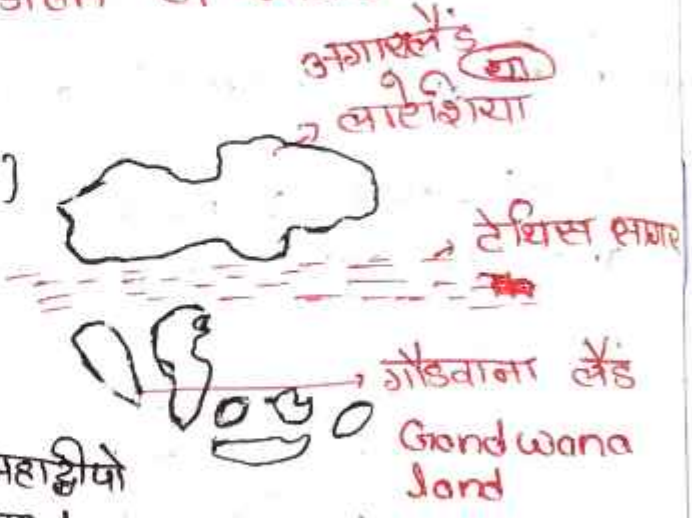 अगारालैंड
या
लारेशिया
टेथिस सागर
गौडवाना लैंड
Gondwana
land
महाद्वीपो